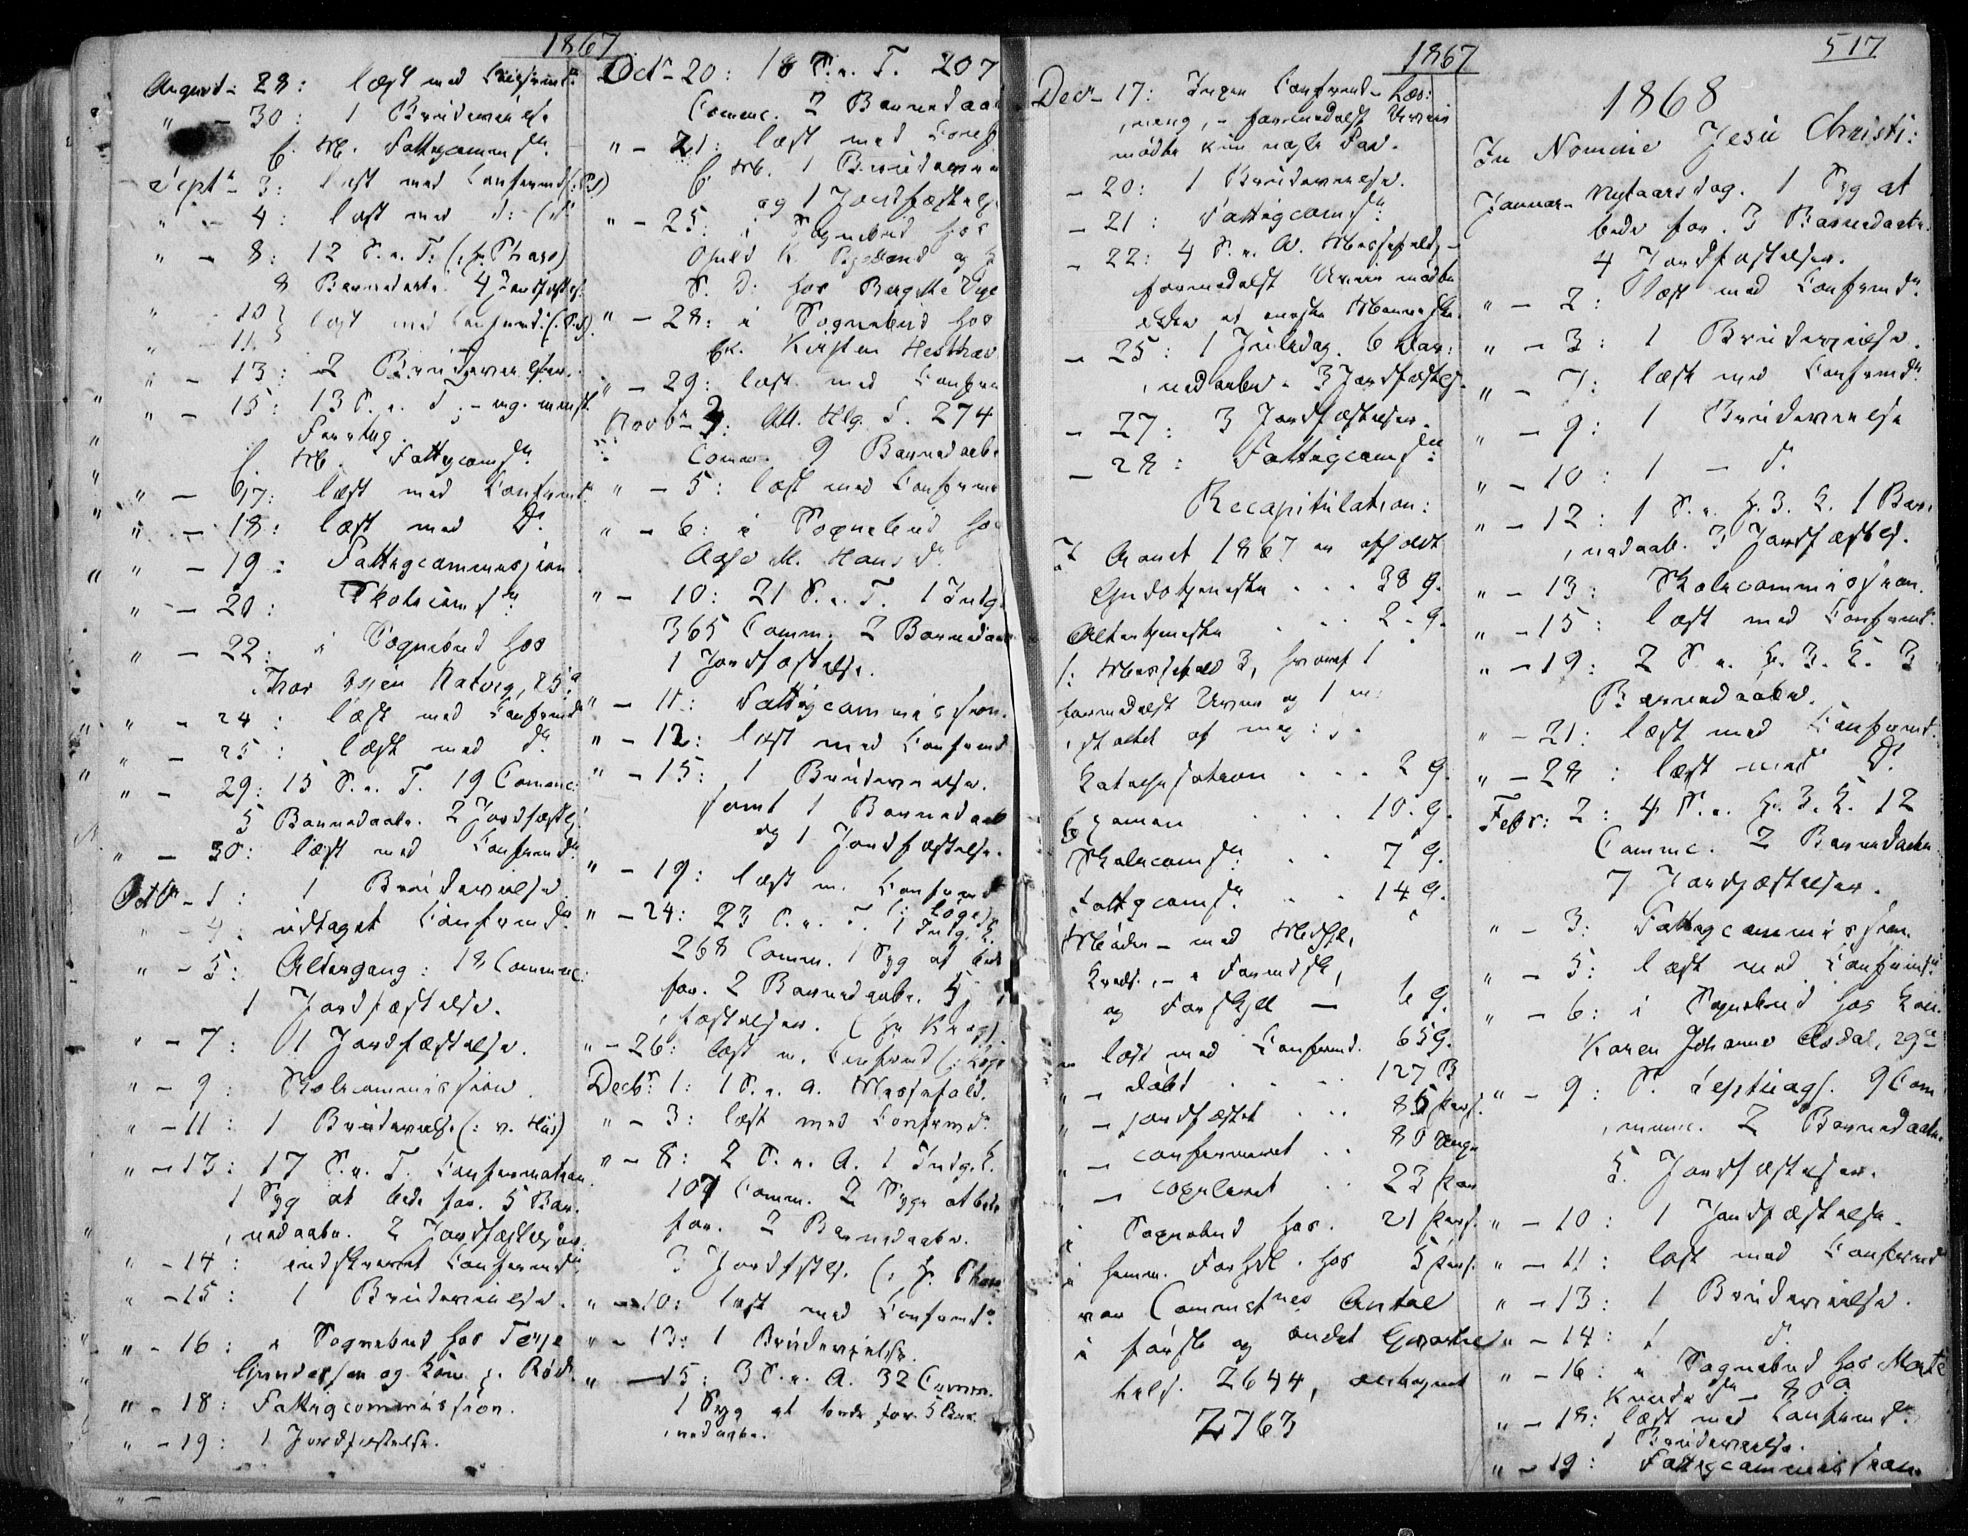 1867
August - 28: læst med Confirmd.
" - 30: 1 Brudevielse
Fattigcommsn.
Septr - 3: læst med Confirmd.
" - 4: læst med do
" - 8: 12 S. e. T.
8 Barnedaabe. 4 Jordfæstels.
" 10
" 11 læst med Confirmd.
" - 13: 2 Brudevielser.
" - 15: 13 S. e. T.
Fattigcomsn.
" - 17: læst med Confirmd.
" - 18: læst med Do
" - 19: Fattigcommission
" - 20: Skolecomsn.
" - 22: i Sognebud hos
Natvig, 25 a
" - 24: læst med Confirmd
" - 25: læst med do
" - 29: 15 S. e. T. 19 Commc:
5 Barnedaabe. 2 Jordfæstels.
" - 30: læst med Confirmd.
Octbr - 1: 1 Brudevielse
" - 4: udtaget Confirmd.
" - 5: Altergang: 18 Commc.
1 Jordfæstelse.
" - 7: 1 Jordfæstelse.
" - 9: Skolecommission
" - 11: 1 Brudevielse (: v. Huus)
" - 13: 17 S. e. T. Confirmation.
1 Syg at bede for. 5 Bar-
nedaabe. 2 Jordfæstelser.
" - 14: indskrevet Confirmd.
" - 15: 1 Brudevielse.
" - 16: i Sognebud hos Terje
Gundersen og Kone
" - 18: Fattigcommission.
" - 19: 1 Jordfæstelse.
Octr - 20: 18 S. e. T. 207
Commc. 2 Barnedaab
" - 21: læst med Conf
1 Brudeviel
og 1 Jordfæstelse
" - 25: i Sognebud hos
" - 28: i Sognebud hos
Kirsten
" - 29: læst med Confirm
Novbr - 3: All. Hlg. D. 274
Comm. 9 Barnedaabe
" - 5: læst med Confirm
" - 6: i Sognebud ho
M. Hansdr.
" - 10: 21 S. e. T. 1 Indg.
365 Comm. 2 Barnedaab
1 Jordfæstelse.
" - 11: Fattigcommission.
" - 12: læst med Confirmd
" - 15: 1 Brudevielse.
samt 1 Barnedaab
og 1 Jordfæstelse.
" - 19: læst m. Confirmd
" - 24: 23 S. e. T. 1 Indg. K.
268 Comm. 1 Syg at bede
for. 2 Barnedaabe. 5 J
fæstelser.
" - 26: læst m. Confirmd
Decbr: 1: 1 S. e. A. Messefald.
" - 3: læst med Confirmd.
" - 8: 2 S. e. A. 1 Indg. K.
107 Comm. 2 Syge at bede
for. 2 Barnedaabe.
3 Jordfstls.
" - 10: læst med Confirmd.
" - 13: 1 Brudevielse.
" - 15: 3 S. e. A. 32 Comm.
1 Syg at bede for. 5 Bar-
nedaabe.
1867
Decr - 17: Ingen Confirmd - Læs-
ning, - formedelst Uveir
mødte kun nogle Faa.
- 20: 1 Brudevielse.
- 21: Fattigcomsn:
- 22: 4 S. e. A. Messefald, -
formedelst Uveir mødte
ikke et eneste Menneske.
- 25: 1 Juledag. 6 Bar-
nedaabe. 3 Jordfæstels.
- 27: 3 Jordfæstelser.
- 28: Fattigcomsn:
Recapitulation:
I Aaret 1867 er afholdt
Gudstjeneste . . . 38 G.
Altertjeneste . . . 2 G.
(: Messefald 3, hvoraf 1
formedelst Uveir og 1
Katechisation . . . 2 G.
Examen . . . 10 G.
Skolecomsn: . . 7 G.
Fattigcomsn . . 14 G.
Møder - med
og Forligelse - 6 G.
læst med Confirmd. 65 G.
- døbt . . . . 127 B
- jordfæstet . . . 85 Pers.
- confirmeret . . 80 Unge
- copuleret . . 23 Par
i Sognebud hos. 21 Pers.
hos 5 Pers.
var Commctnes Antal
i første og andet
2644, antegnet
2763
517
1868
In Nomine Jesu Christi:
Januar - Nytaarsdag. 1 Syg at
bede for. 3 Barnedaabe.
4 Jordfæstelser.
" - 2: læst med Confirmd.
" - 3: 1 Brudevielse.
" - 7: læst med Confirmd.
" - 9: 1 Brudevielse
" - 10: 1 - do
" - 12: 1 S. e. H. 3. K. 1 Bar-
nedaab. 3 Jordfæstels.
" - 13: Skolecommission.
" - 15: læst med Confirmd.
" - 19: 2 S. e. H. 3. K. 3
Barnedaabe.
" - 21: læst med Confirmd.
" - 28: læst med Do
Febr: 2: 4 S. e. H. 3. K. 12
Commc. 2 Barnedaabe
7 Jordfæstelser.
" - 3: Fattigcommission.
" - 5: læst med Confirmd.
" - 6: i Sognebud hos Kone
Karen Johanne Aasdal, 29 a
" - 9: S. Septuags. 9 Com-
munc. 2 Barnedaabe.
5 Jordfæstelser.
" - 10: 1 Jordfæstelse.
" - 11: læst med Confirmd
" - 13: 1 Brudevielse.
" - 14: 1 do
" - 16: i Sognebud hos Marte
Knudsdr - 80 a
" - 18: læst med Confirmd.
1 Brudevielse.
" - 19: Fattigcommission.